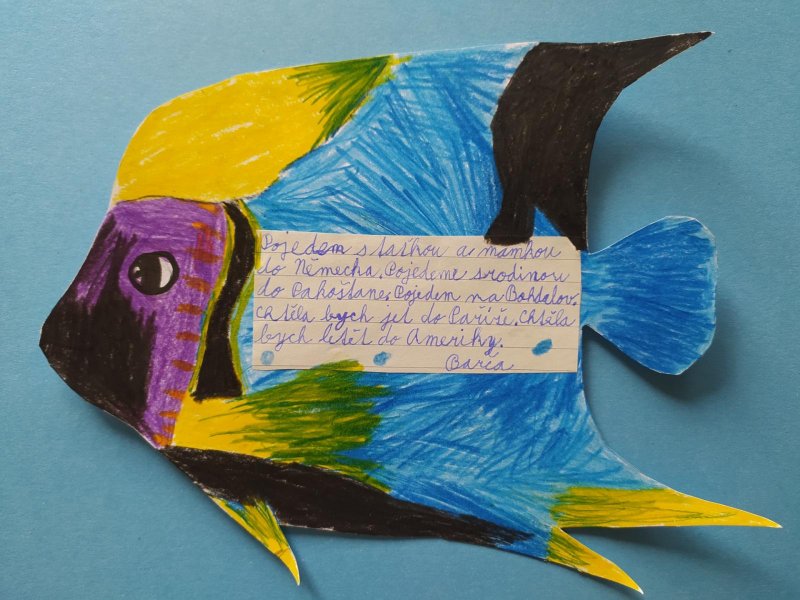 Pojedem s taťkou a mamkou
do Německa. Pojedeme s rodinou
do Pakoštane. Pojedem na Bohdalov.
Chtěla bych jet do Paříže. Chtěla
bych letět do Ameriky.
Barča